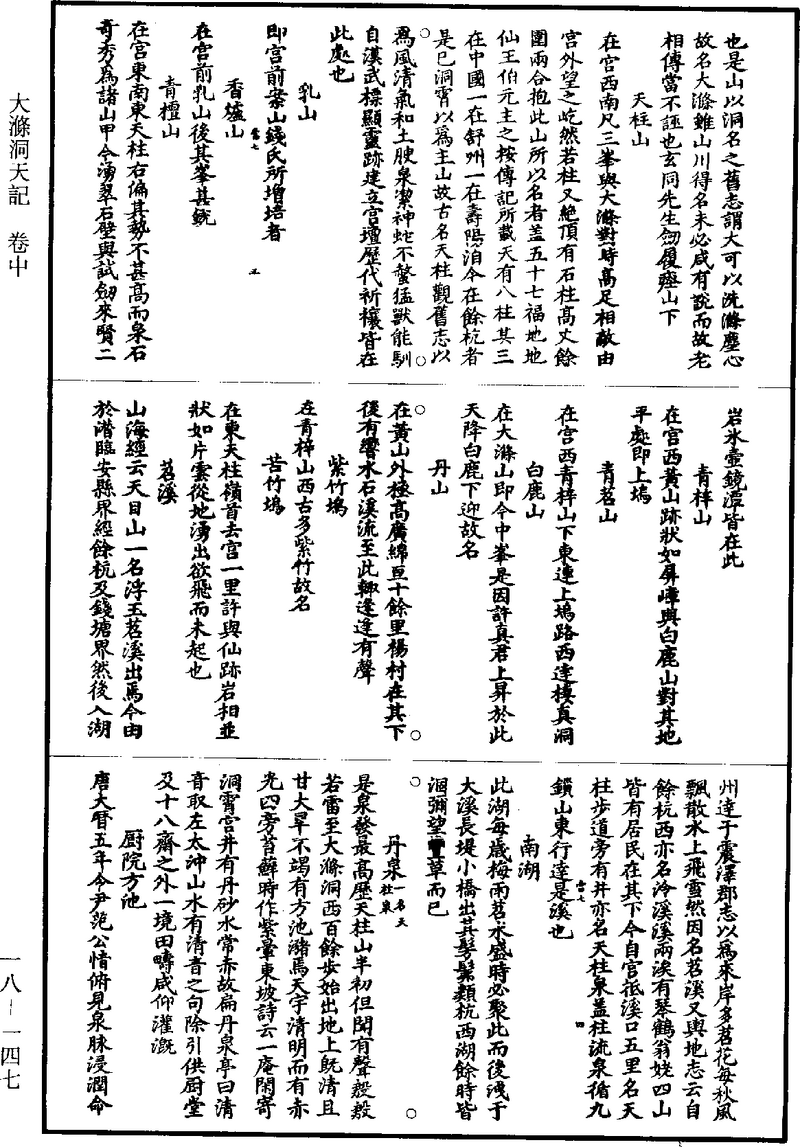 大滌洞天記　卷中
也是山以洞名之舊志謂大可以洗滌塵心
故名大滌雖山川得名未必咸有說而故老
相傳當不誣也玄同先生劒履瘞山下
天柱山
在宮西南凡三峯與大滌對峙高足相敵由
宮外望之屹然若柱又絶頂有石柱高丈餘
圍兩合抱此山所以名者盖五十七福地地
仙王伯元主之按傳記所載天有八柱其三
在中國一在舒州一在壽陽洎今在餘杭者
是巳洞霄以爲主山故古名天柱觀舊志以
爲風清氣和土腴泉潔神蛇不螫猛獸能馴
自漢武標顯靈跡建立宮壇歷代祈禳皆在
此處也
乳山
即宮前案山錢氏所增培者
香爐山
在宮前乳山後其峯甚銳
青檀山
在宮東南東天柱右偏其勢不甚高而泉石
奇秀爲諸山甲今湧翠石壁與試劒來賢二
岩氷壺鏡潭皆在此
青梓山
在宮西黃山跡狀如屏嶂與白鹿山對其地
平處即上塢
青茗山
在宮西青梓山下東連上塢路西達棲真洞
白鹿山
在大滌山即今中峯是因許真君上昇於此
天降白鹿下迎故名
丹山
在黃山外極高廣綿亘十餘里楊村在其下
後有響水石溪流至此輙逢逢有聲
紫竹塢
在青梓山西古多紫竹故名
苦竹塢
在東天柱嶺首去宮一里許與仙跡岩相並
狀如片雲從地湧出欲飛而未起也
苕溪
山海經云天目山一名浮玉苕溪出焉今由
於濳臨安縣界經餘杭及錢塘界然後入湖
州達于震澤郡志以爲夾岸多苕花每秋風
飄散水上飛雪然因名苕溪又輿地志云自
餘杭西亦名泠溪溪兩涘有琴鶴翁姥四山
皆有居民在其下今自宮抵溪口五里名天
柱步道旁有井亦名天柱泉盖柱流泉循九
鎖山東行達是溪也
南湖
此湖每歲梅雨苕水盛時必聚此而後洩于
大溪長堤小橋出其髣髴類杭西湖餘時皆
涸彌望豐草而巳
丹泉一名天柱泉
是泉發最高歷天柱山半初但聞有聲瑴瑴
若雷至大滌洞西百餘步始出地上旣清且
甘大旱不竭有方池瀦焉天宇清明而有赤
光四旁苔蘚時作紫暈東坡詩云一庵閑寄
洞霄宮井有丹砂水常赤故扁丹泉亭曰清
音取左太沖山水有清音之句除引供厨堂
及十八齋之外一境田疇咸仰灌漑
厨院方池
唐大曆五年令尹范公愔俯見泉脉浸潤命
一八-一四七